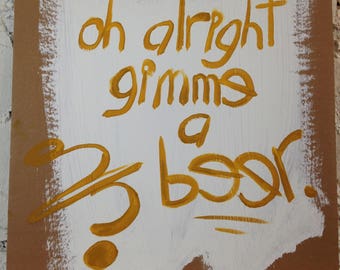 oh alright
gimme
a
beer.